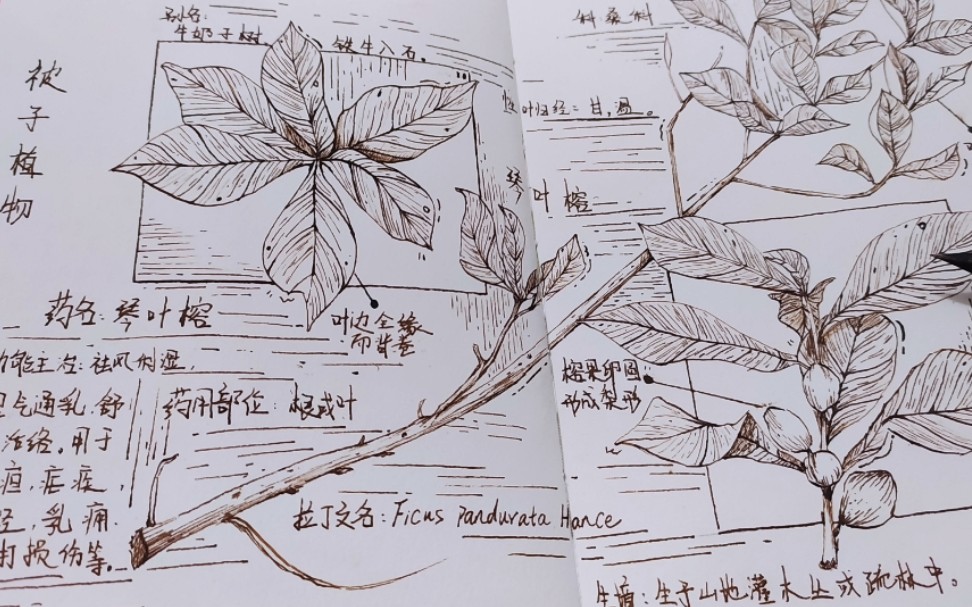 被子植物
别名:
牛奶子树
铁牛入石。
药名:琴叶榕
功能主治:祛风利湿,
气通乳.舒
活络.用于
疸.疟疾,
乳痈.
打损伤等。
药用部位:根或叶
叶边全缘
拉丁文名:Ficus Pandurata Hance
科桑科
归经:甘,温。
琴叶榕
榕果卵圆
形或梨形
生境:生于山地灌木丛或疏林中。